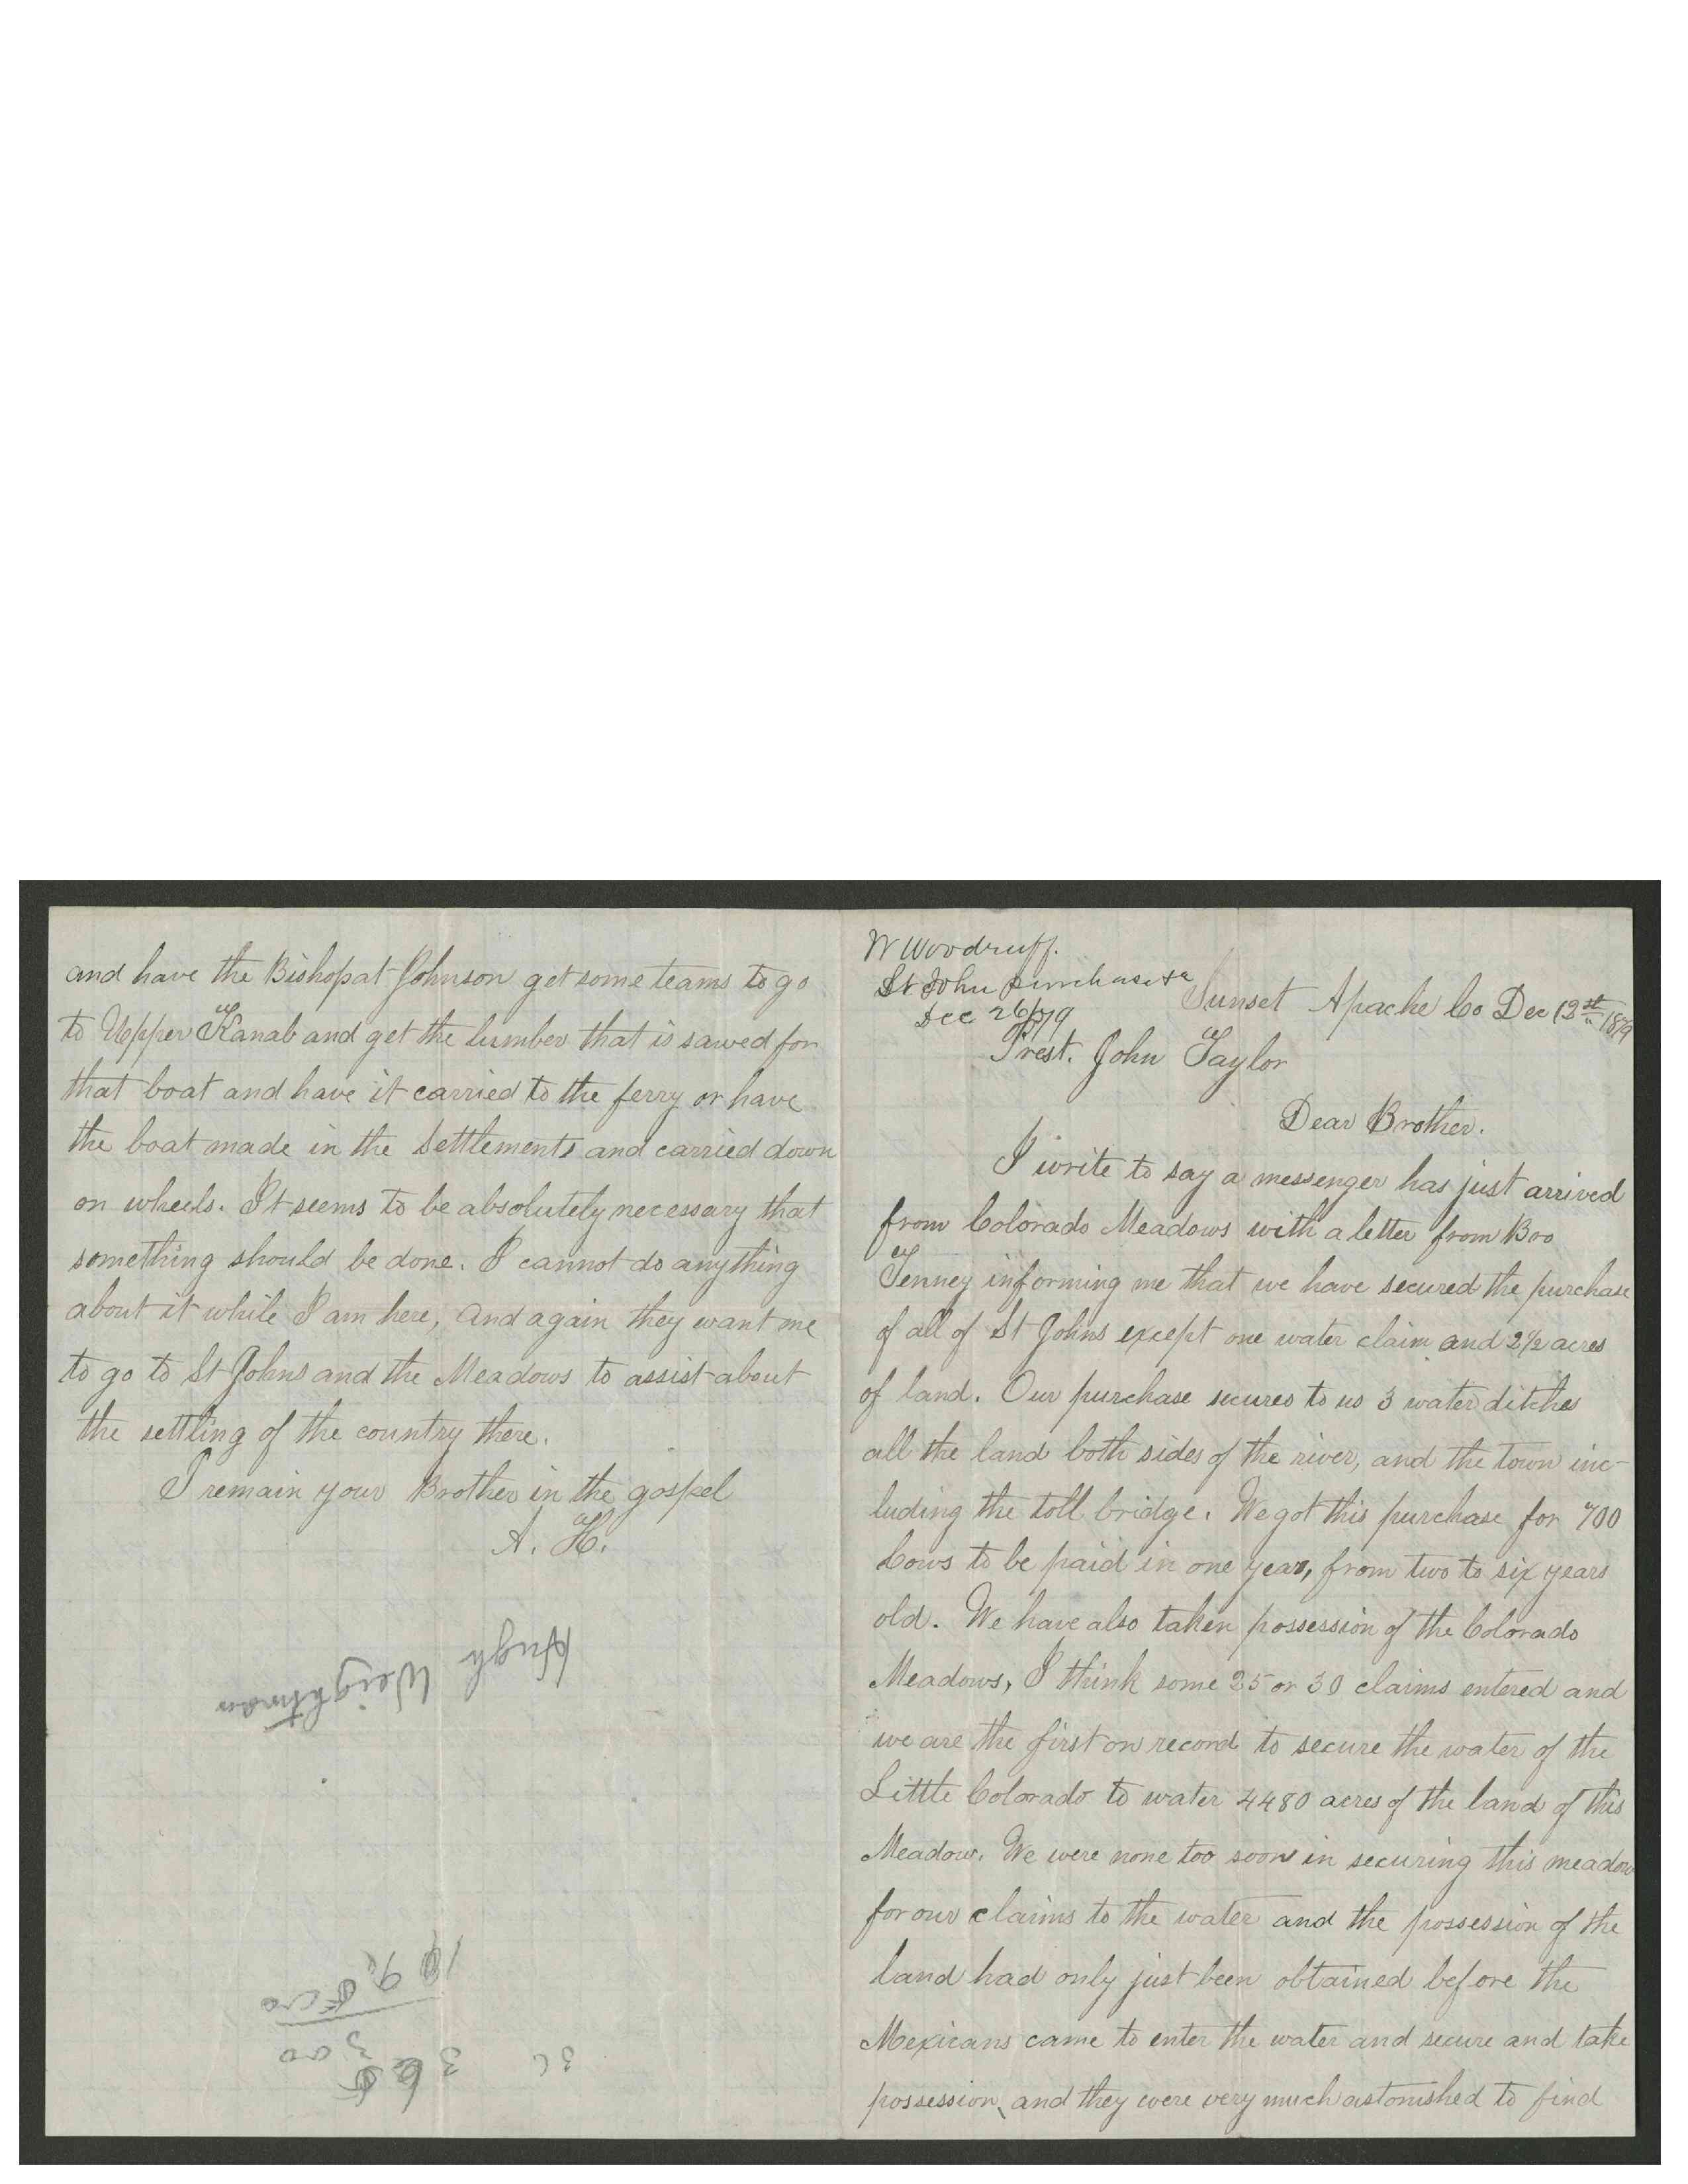 and have the Bishop at Johnson get some teams to go
to Upper Kanab and get the lumber that is sawed for
that boat and have it carried to the ferry or have
the boat made in the Settlements and carried down
on wheels. It seems to be absolutely necessary that
something should be done. I cannot do anything
about it while I am here, and again they want me
to go to St Johns and the Meadows to assist about
the settling of the country there.
I remain your Brother in the gospel
A. H.
Hugh Weightman
36
3
300
W Woodruff.
St John purchase &c
Dec 26/79
Sunset Apache Co Dec 1879
Prest. John Taylor
Dear Brother.
I write to say a messenger has just arrived
from Colorado Meadows with a letter from Bro
Tenney informing me that we have secured the purchase
of all of St Johns except one water claim and 2 1/2 acres
of land. Our purchase secures to us 3 water ditches
all the land both sides of the river, and the town inc-
luding the toll bridge. We got this purchase for 700
Cows to be paid in one year, from two to six years
old. We have also taken possession of the Colorado
Meadows, I think some 25 or 30 claims entered and
we are the first on record to secure the water of the
Little Colorado to water 4480 acres of the land of this
Meadow. We were none too soon in securing this meadow
for our claims to the water and the possession of the
land had only just been obtained before the
Mexicans came to enter the water and secure and take
possession, and they were very much astonished to find